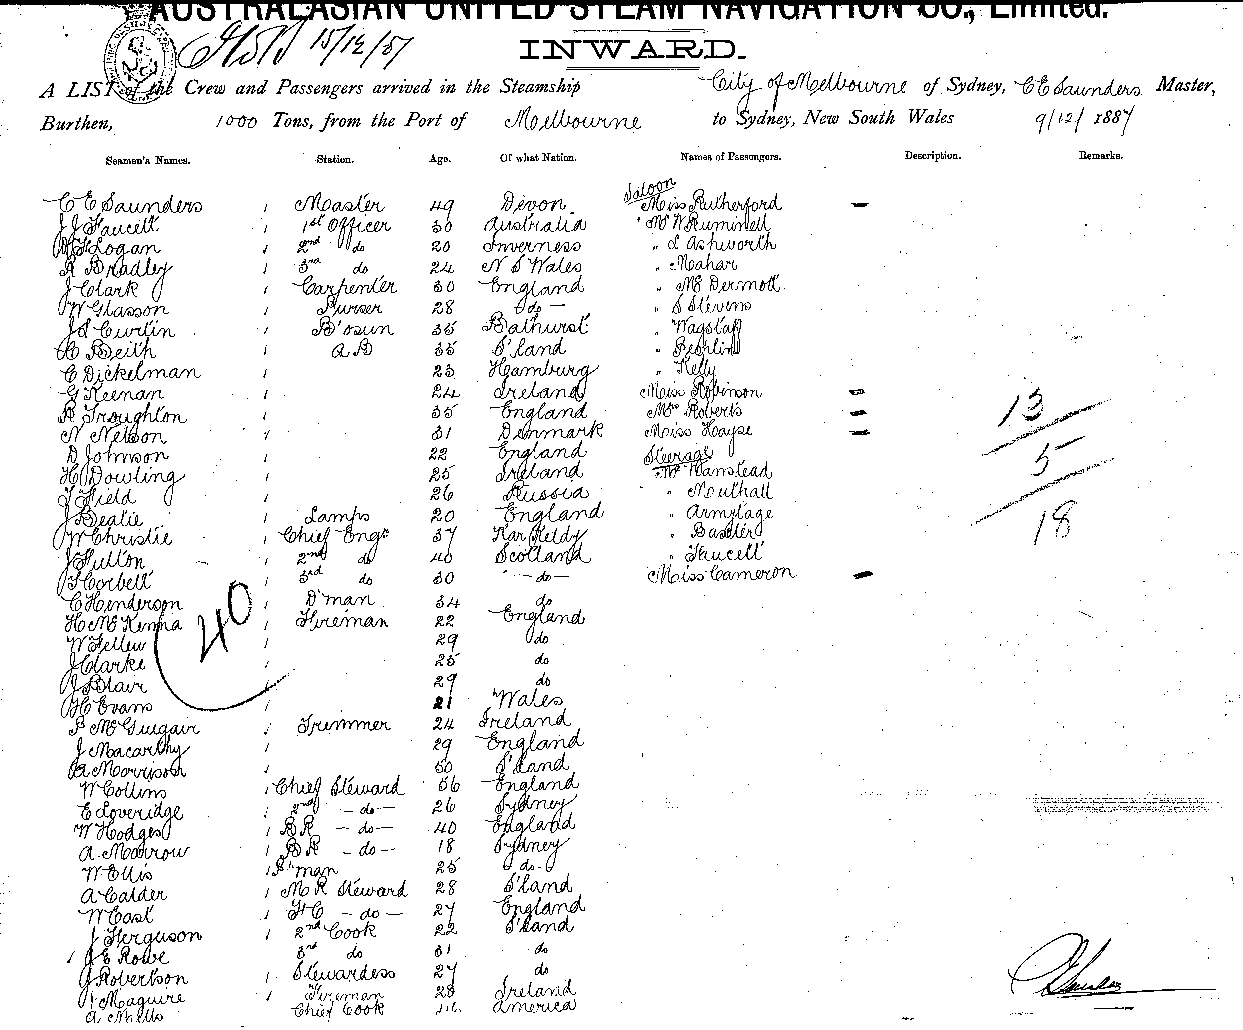 AUSTRALASIAN UNITED STEAM NAVIGATION CO., Limited.
15/12/87
INWARD.
A LIST of the Crew and Passengers arrived in the Steamship City of Melbourne of Sydney, C E Saunders Master,
Burthen, 1000 Tons, from the Port of Melbourne to Sydney, New South Wales 9/12/ 1887
Seamen's Names. Station. Age. Of what Nation. Names of Passengers. Description. Remarks.
Saloon
C E Saunders 1 Master 49 Devon Miss Rutherford –
J J Faucett 1 1st Officer 30 Australia Mr W Ruminell
Logan 1 2nd do 20 Inverness " L Ashworth
R Bradley 1 3rd do 24 N S Wales " Mahar
J Clark 1 Carpenter 30 England " McDermott
W Glasson 1 Purser 28 do – " S Stevens
J S Curtin 1 B'osun 35 Bathurst " Wagstaff
Beith 1 A B 35 S'land "
C Dickelman 1 23 Hamburg " Kelly
G Keenan 1 24 Ireland Miss Robinson –
R Troughton 1 35 England Mrs Roberts –
N Nelson 1 31 Denmark Miss Hayse –
13
D Johnson 22 England Steerage
H Dowling 1 25 Ireland Mr Hanstead
5
Field 1 26 Russia " Mouthall
J Beatie 1 Lamps 20 England " Armytage
18
W Christie 1 Chief Engr 37 " Baxter
J Fulton 1 2nd do 40 Scotland " Faucett
Corbett 1 3rd do 30 – do – Miss Cameron –
C Henderson 1 D'man 34 do
H McKenna 1 Fireman 22 England
40
W Fellew 1 29 do
J Clarke 1 25 do
J Blair 29 do
H Evans 21 Wales
P McGuigair 1 Trimmer 24 Ireland
J Macarthy 1 29 England
A Morrison 1 30 S'land
W Collins 1 Chief Steward 36 England
E Loveridge 1 2nd – do – 26 Sydney
W Hodges 1 B R – do – 40 England
A Marrow 1 B R – do – 18 Sydney
W Ellis 1 P'man 25 do
A Calder 1 M R Steward 28 S'land
W East 1 F C – do – 27 England
J Ferguson 1 2nd Cook 22 S'land
J E Rowe 3rd do 31 do
J Robertson 1 Stewardess 27 do
J Maguire 1 Fireman 28 Ireland
A Mills Chief Cook America